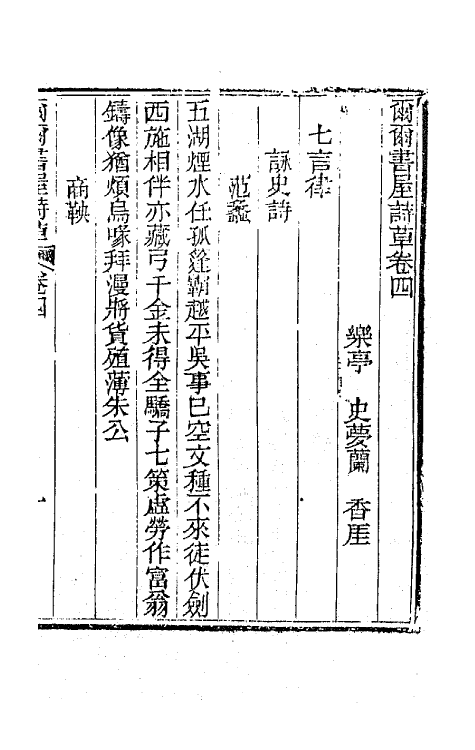 爾爾書屋詩草卷四
樂亭　史夢蘭　香厓
七言律
詠史詩
范蠡
五湖煙水任孤篷霸越平吳事已空文種不來徒伏劍
西施相伴亦藏弓千金未得全驕子七策虛勞作富翁
鑄像猶煩烏喙拜漫將貨殖薄朱公
商鞅
爾爾書屋詩草　卷四　一